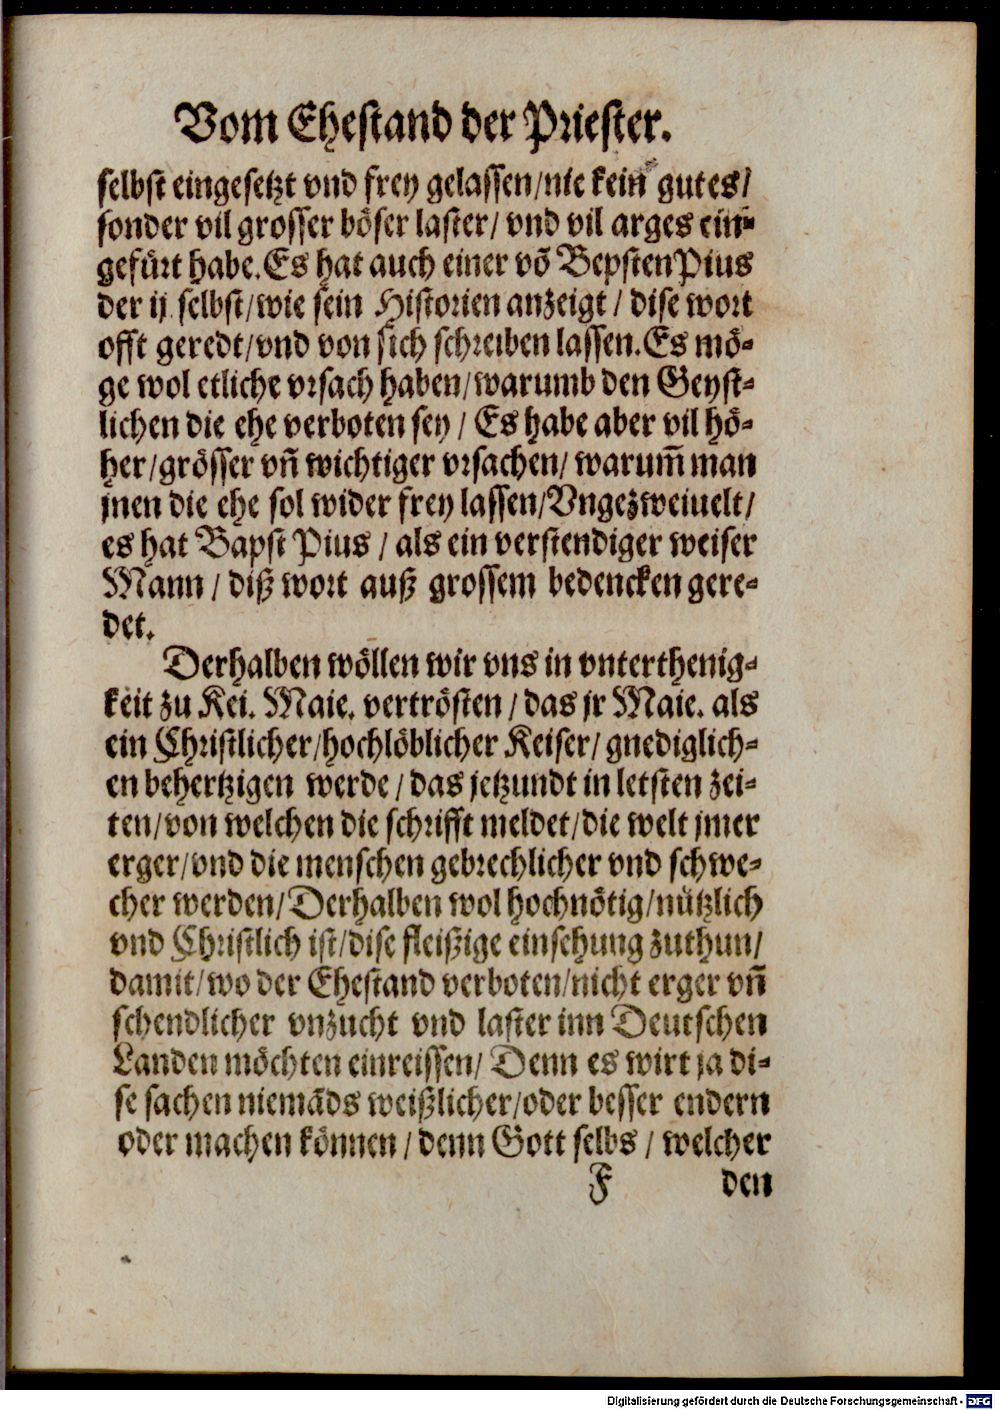 Vom Ehestand der Priester.
selbst eingesetzt vnd frey gelassen/nie kein gutes/
sonder vil grosser böser laster/ vnd vil arges ein-
gefürt habe. Es hat auch einer võ Bepsten Pius
der ij. selbst/wie sein Historien anzeigt / dise wort
offt geredt/vnd von sich schreiben lassen. Es mö-
ge wol etliche vrsach haben/warumb den Geyst-
lichen die ehe verboten sey / Es habe aber vil hö-
her/grösser vñ wichtiger vrsachen/ warum̃ man
jnen die ehe sol wider frey lassen/Vngezweiuelt/
es hat Bapst Pius / als ein verstendiger weiser
Mann / diß wort auß grossem bedencken gere-
det.
Derhalben wöllen wir vns in vnterthenig-
keit zu Kei. Maie. vertrösten / das jr Maie. als
ein Christlicher/hochlöblicher Keiser/ gnediglich-
en behertzigen werde / das jetzundt in letsten zei-
ten/von welchen die schrifft meldet/die welt jmer
erger/vnd die menschen gebrechlicher vnd schwe-
cher werden/Derhalben wol hochnötig/nützlich
vnd Christlich ist/dise fleißige einsehung zuthun/
damit/wo der Ehestand verboten/nicht erger vñ
schendlicher vnzucht vnd laster inn Deutschen
Landen möchten einreissen/ Denn es wirt ja di-
se sachen niemãds weißlicher/oder besser endern
oder machen können / denn Gott selbs / welcher
F den
Digitalisierung gefördert durch die Deutsche Forschungsgemeinschaft - DFG